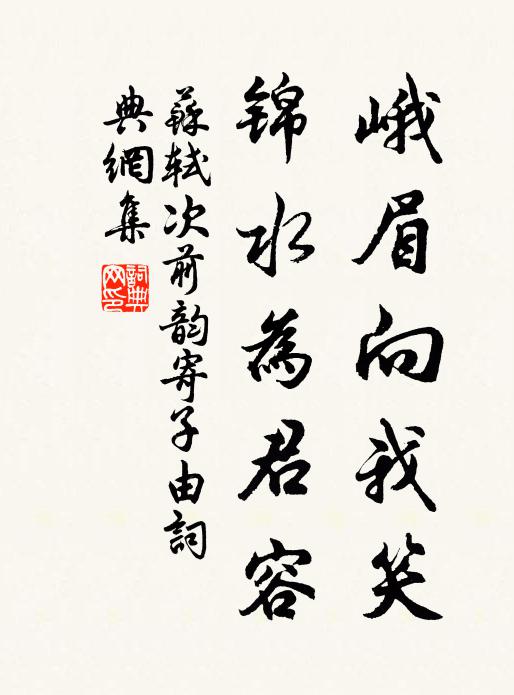 峨眉向我笑
锦水為君容
蘇軾次前韵寄子由詞
典網集
詞典
网印